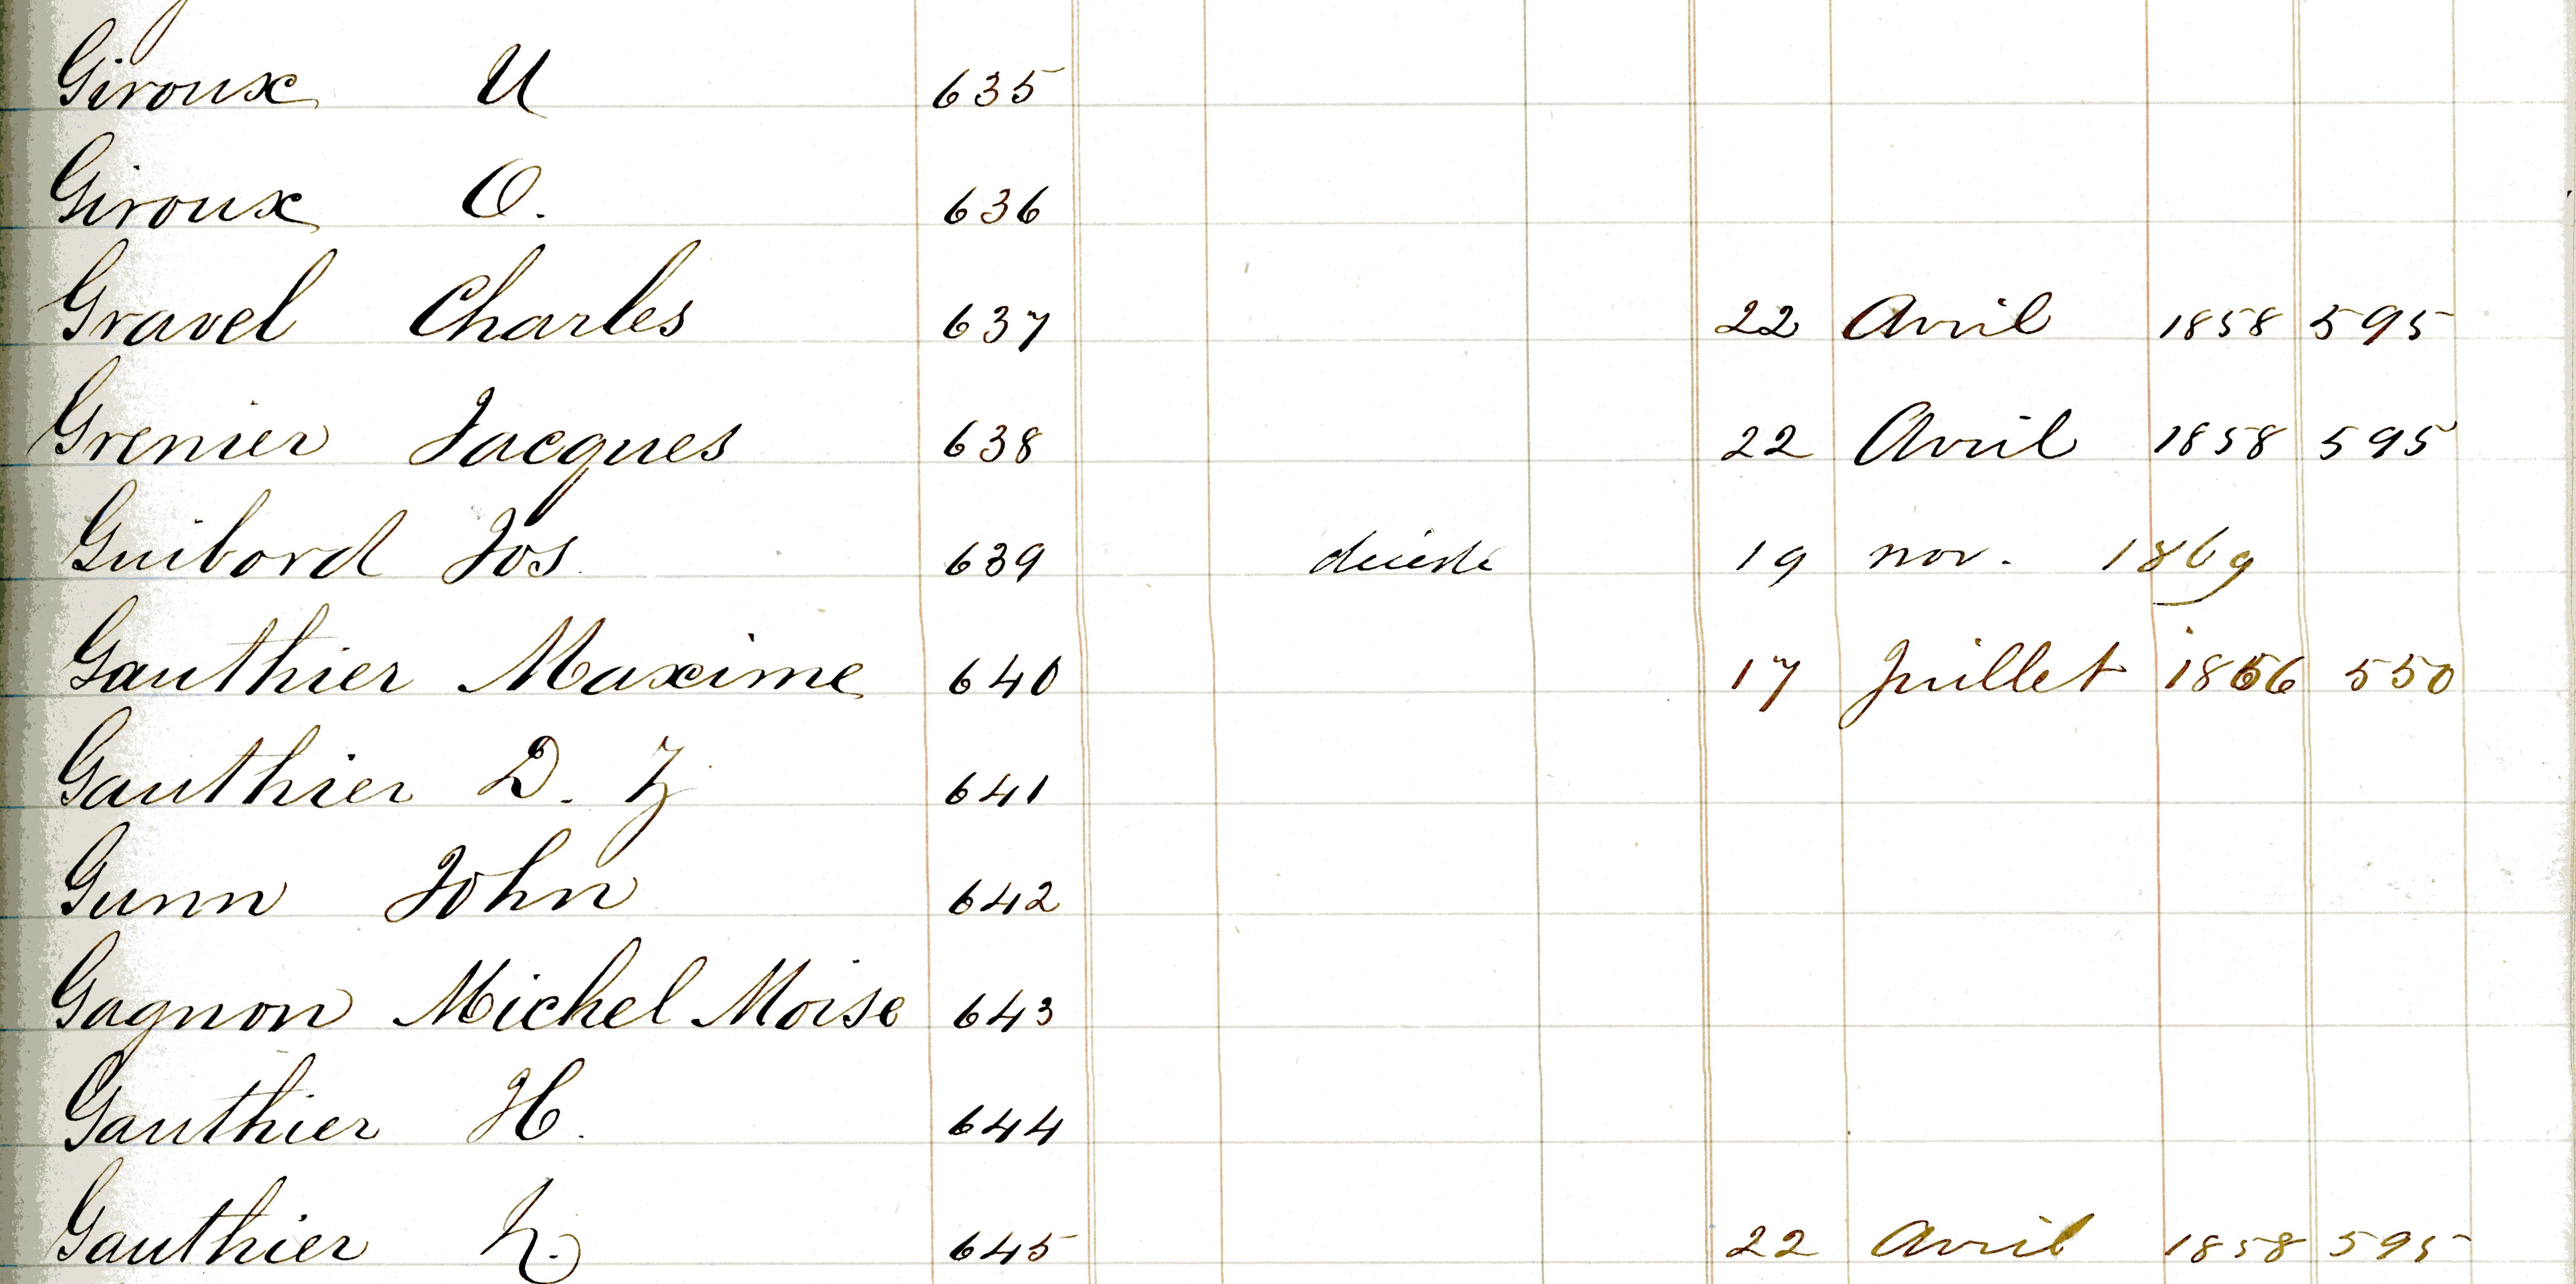 Giroux U 635
Giroux O. 636
Gravel Charles 637 22 Avril 1858 595
Grenier Jacques 638 22 Avril 1858 595
Guibord Jos 639 décédé 19 nov. 1869
Gauthier Maxime 640 17 Juillet 1856 550
Gauthier D. Z 641
Gunn John 642
Gagnon Michel Moise 643
Gauthier H. 644
Gauthier 645 22 Avril 1858 595